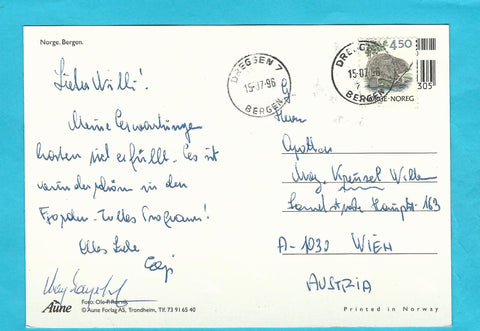 Norge. Bergen.
Lieber Willi!
Meine Erwartungen
haben sich erfüllt. Es ist
wunderschön in den
Fjorden - Tolles Programm!
Alles Liebe
Aune
Foto: Ole P. Rørvik
© Aune Forlag AS, Trondheim, Tlf. 73 91 65 40
DREGGEN 7
15-07-96
BERGEN
DREGGEN
15-07-96
7
BERGEN
4.50
305
NOREG
Herrn
Mag. Willi
A-1030 WIEN
AUSTRIA
Printed in Norway